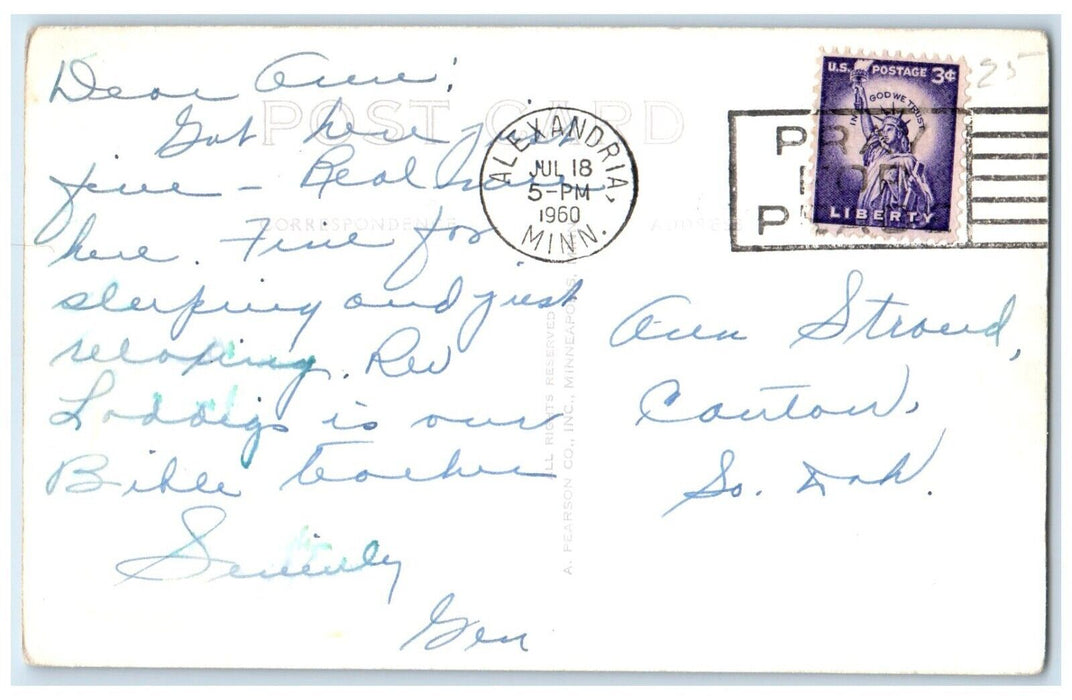 Dear Ann;
Got here just
fine - Real
here. Fine for
sleeping and just
relaxing. Rev
Loddigs is our
Bible teacher
Sincerely
Gen
POST CARD
CORRESPONDENCE
ADDRESS
ALL RIGHTS RESERVED
A. PEARSON CO., INC., MINNEAPOLIS,
ALEXANDRIA,
JUL 18
5-PM
1960
MINN.
PRAY
FOR
PEACE
U.S. POSTAGE 3¢
IN GOD WE TRUST
LIBERTY
25
Ann Stroud,
Canton,
So. Dak.